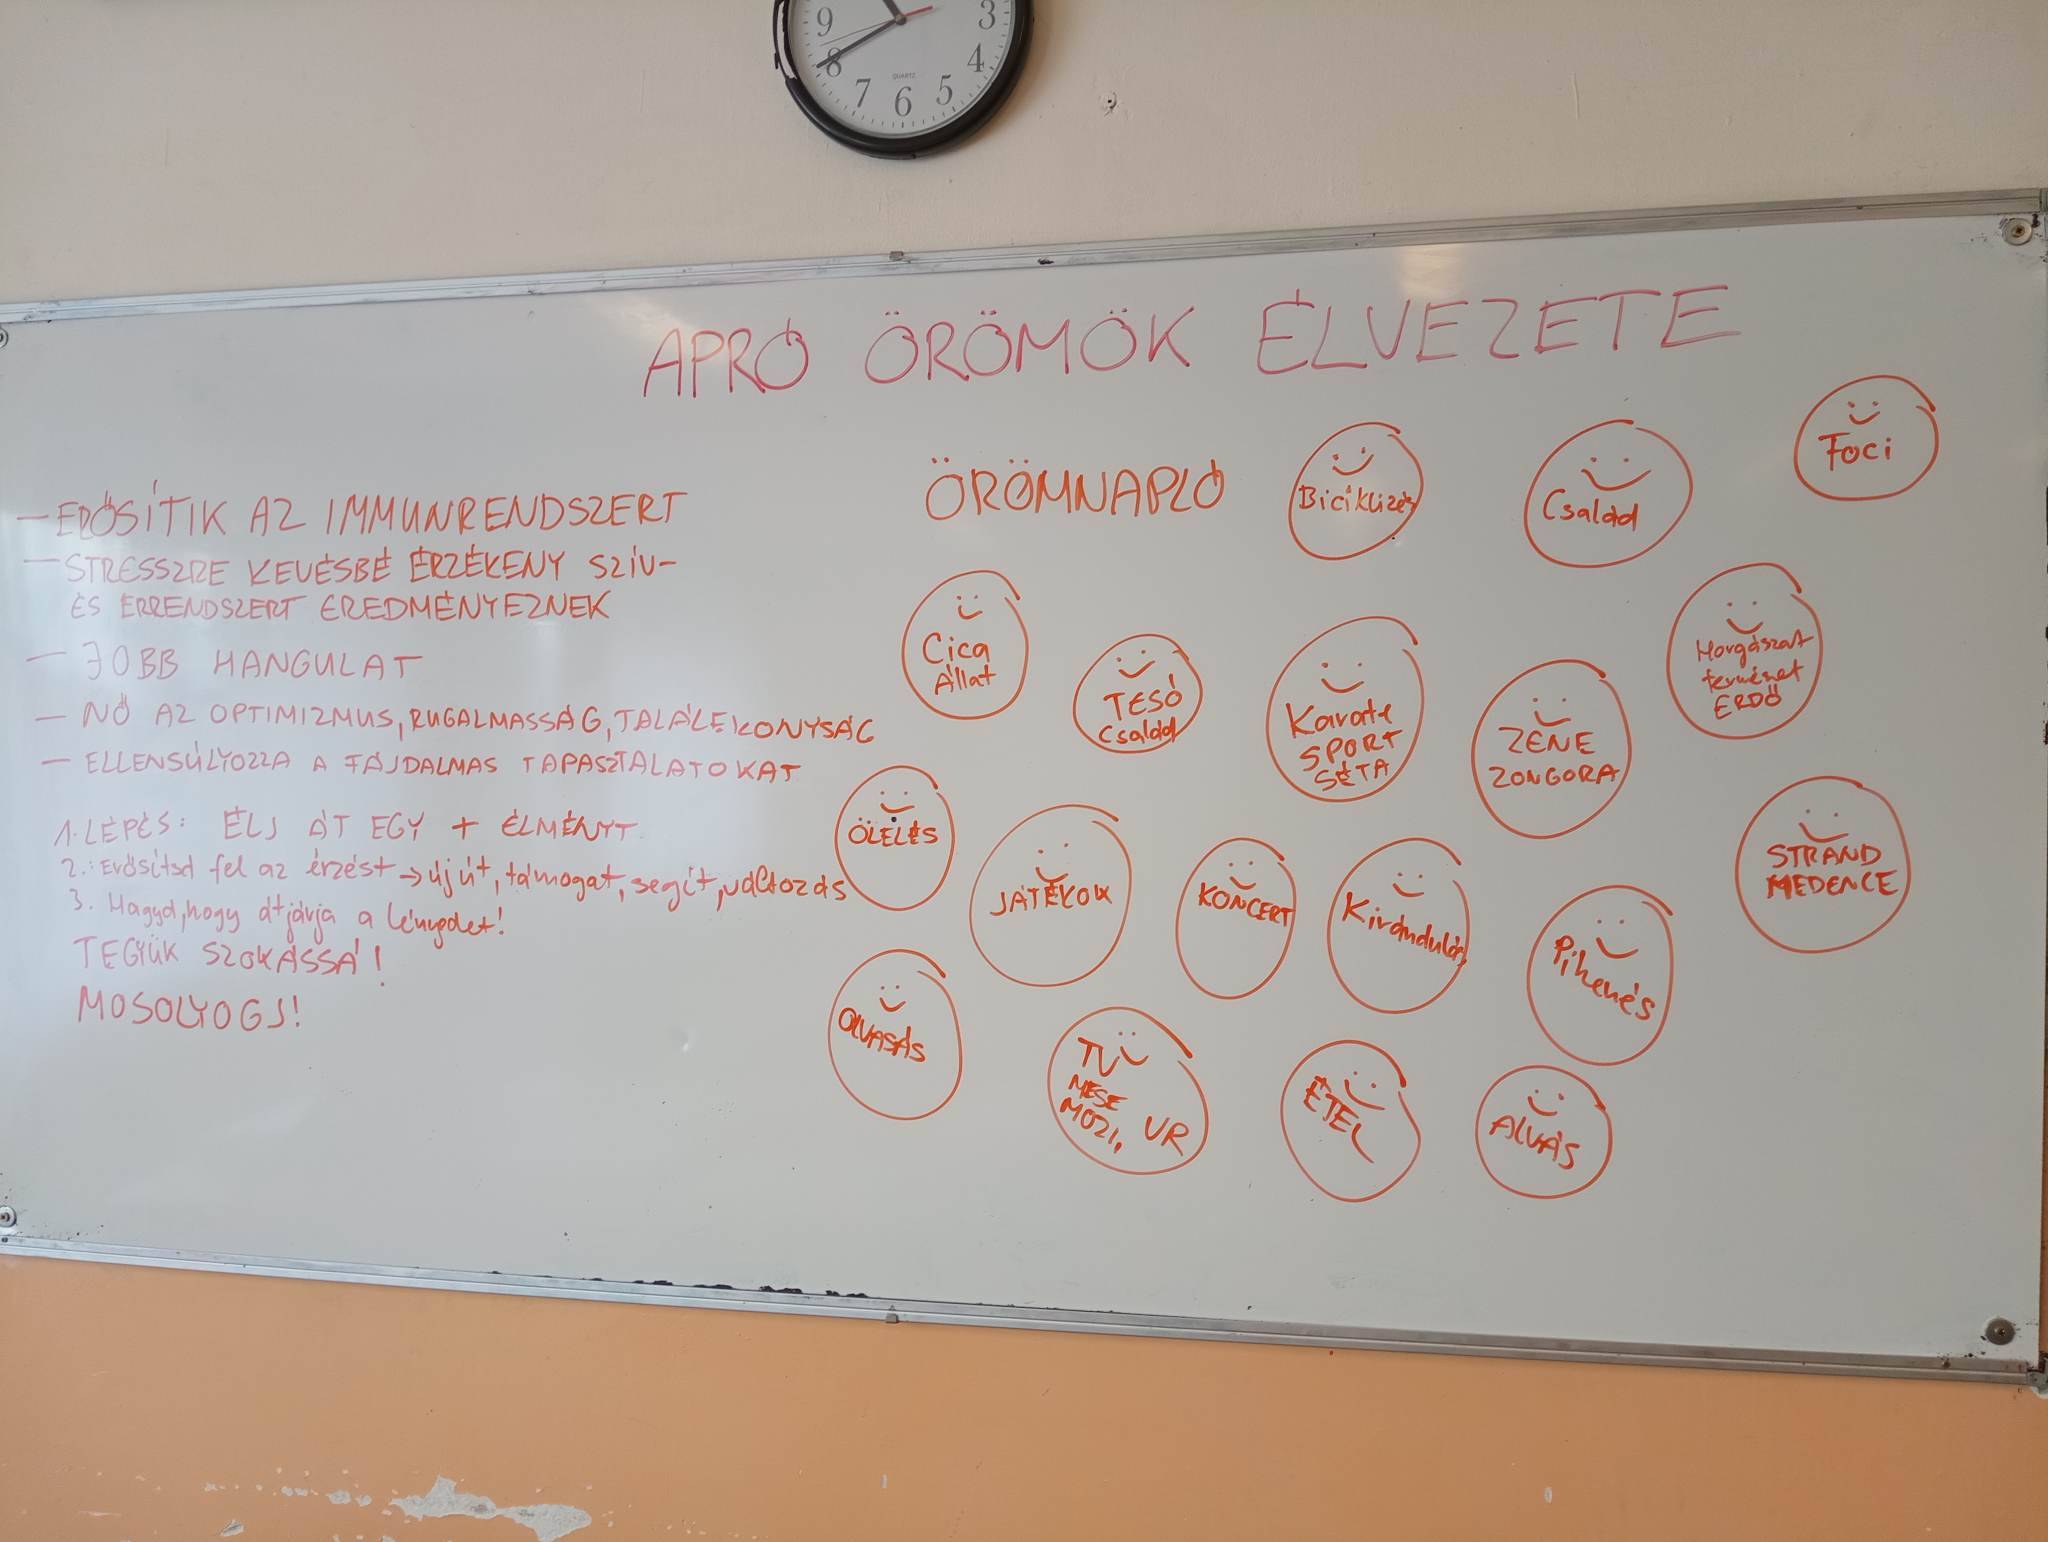 9
3
8
4
7
6
5
QUARTZ
APRÓ ÖRÖMÖK ÉLVEZETE
— ERŐSÍTIK AZ IMMUNRENDSZERT
— STRESSZRE KEVÉSBÉ ÉRZÉKENY SZÍV-
ÉS ÉRRENDSZERT EREDMÉNYEZNEK
— JOBB HANGULAT
— NŐ AZ OPTIMIZMUS, RUGALMASSÁG, TALÁLÉKONYSÁG
— ELLENSÚLYOZZA A FÁJDALMAS TAPASZTALATOKAT
1. LÉPÉS: ÉLJ ÁT EGY + ÉLMÉNYT
2.: Erősítsd fel az érzést → új út, támogat, segít, változás
3. Hagyd, hogy átjárja a lényedet!
TEGYÜK SZOKÁSSÁ!
MOSOLYOGJ!
ÖRÖMNAPLÓ
Biciklizés
Család
Foci
Cica
Állat
TESÓ
Család
Karate
SPORT
SÉTA
ZENE
ZONGORA
Horgászat
természet
ERDŐ
ÖLELÉS
JÁTÉKOK
KONCERT
Kirándulás
Pihenés
STRAND
MEDENCE
OLVASÁS
TV
MESE
MOZI, VR
ÉTEL
ALVÁS